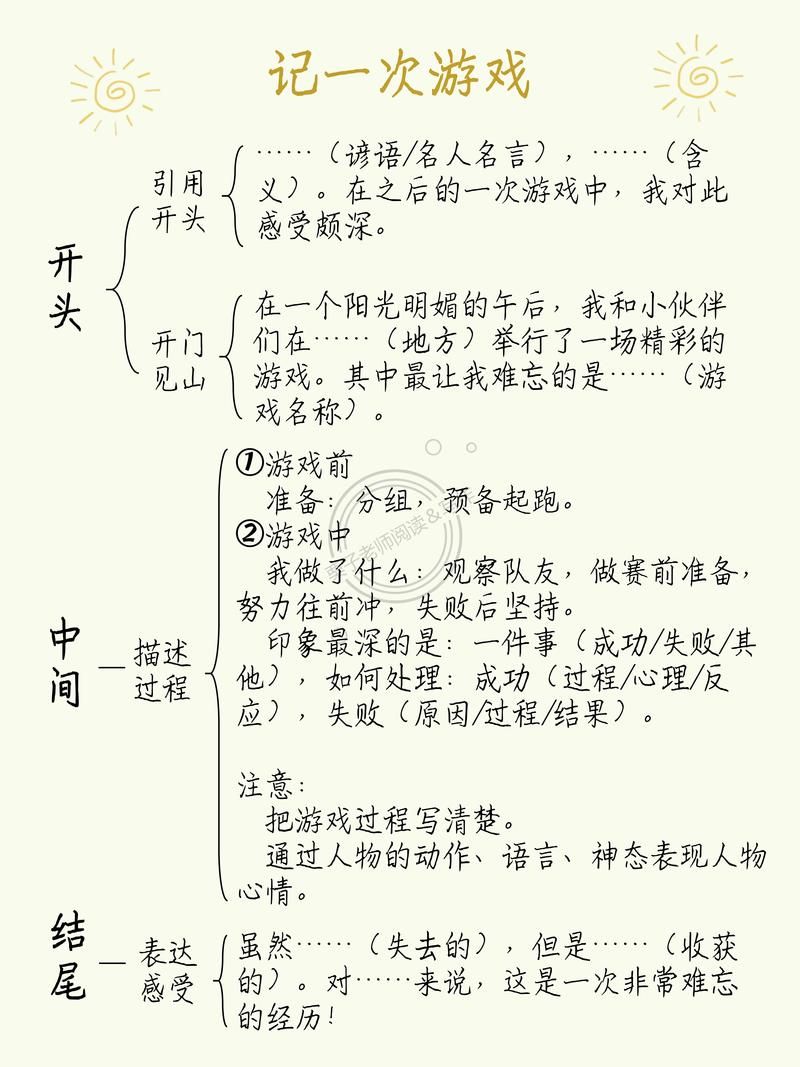 记一次游戏
开头
引用
开头
……（谚语/名人名言），……（含
义）。在之后的一次游戏中，我对此
感受颇深。
开门
见山
在一个阳光明媚的午后，我和小伙伴
们在……（地方）举行了一场精彩的
游戏。其中最让我难忘的是……（游
戏名称）。
中间
描述
过程
①游戏前
准备：分组，预备起跑。
②游戏中
我做了什么：观察队友，做赛前准备，
努力往前冲，失败后坚持。
印象最深的是：一件事（成功/失败/其
他），如何处理：成功（过程/心理/反
应），失败（原因/过程/结果）。
注意：
把游戏过程写清楚。
通过人物的动作、语言、神态表现人物
心情。
结尾
表达
感受
虽然……（失去的），但是……（收获
的）。对……来说，这是一次非常难忘
的经历！